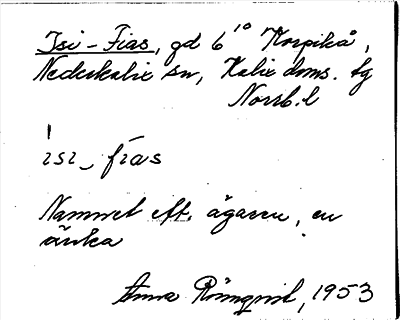 Isi-Fias, gd 6¹⁰ Korpikå,
Nederkalix sn, Kalix doms. tg
Norrb. l
ısı_ fīas
Namnet eft. ägaren, en
änka
Anna Rönnqvist, 1953